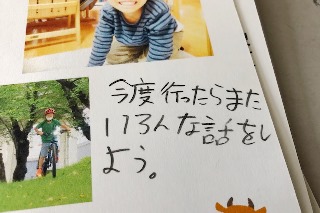 今度行ったらまた
いろんな話をし
よう。